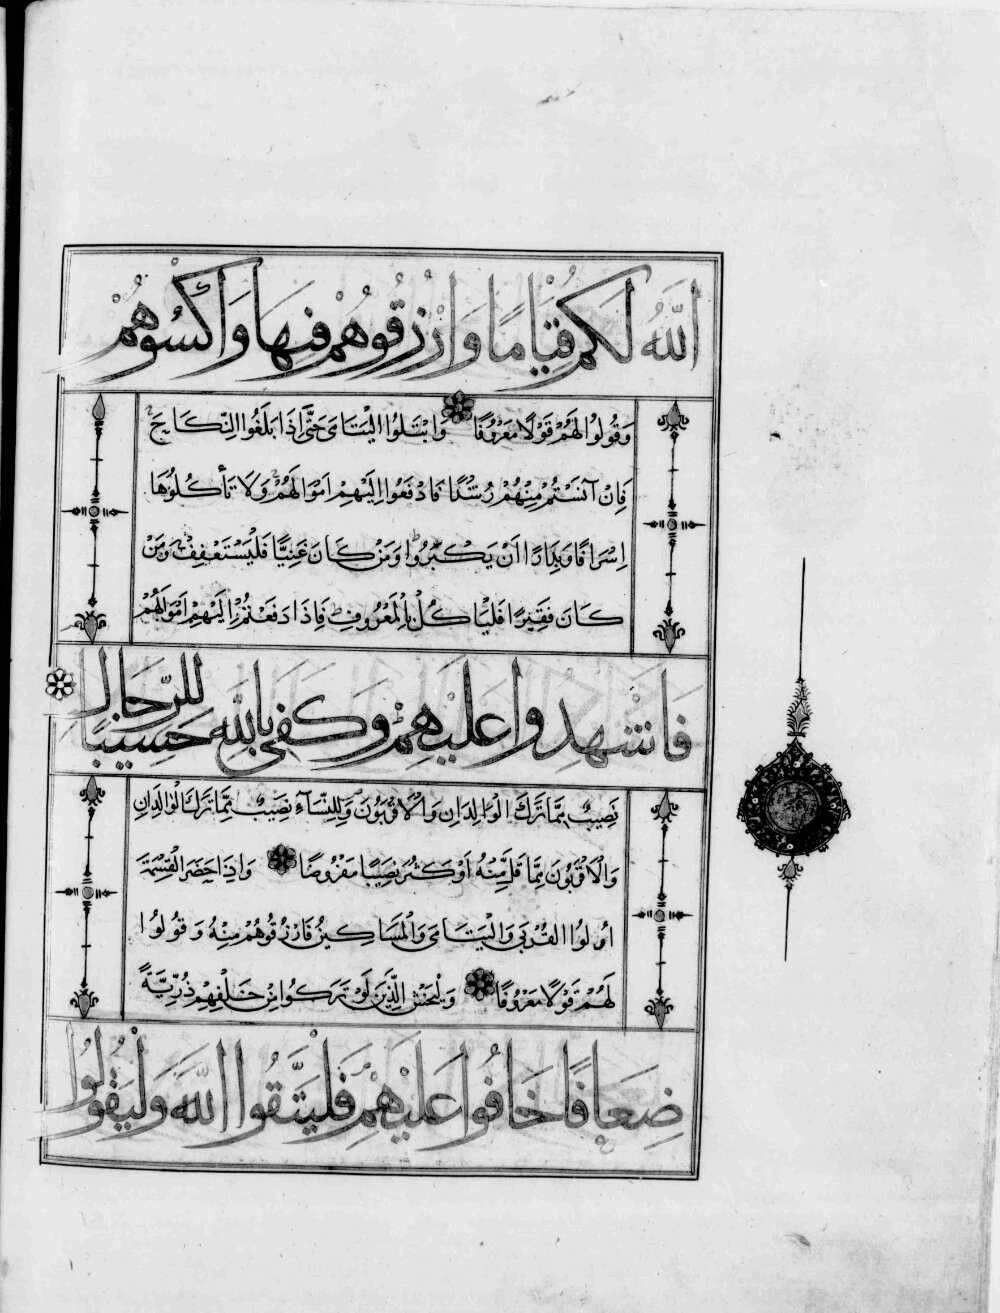 اللَّهُ لَكُمْ قِيَامًا وَارْزُقُوهُمْ فِيهَا وَاكْسُوهُمْ
وَقُولُوا لَهُمْ قَوْلًا مَعْرُوفًا وَابْتَلُوا الْيَتَامَى حَتَّى إِذَا بَلَغُوا النِّكَاحَ
فَإِنْ آنَسْتُمْ مِنْهُمْ رُشْدًا فَادْفَعُوا إِلَيْهِمْ أَمْوَالَهُمْ وَلَا تَأْكُلُوهَا
إِسْرَافًا وَبِدَارًا أَنْ يَكْبَرُوا وَمَنْ كَانَ غَنِيًّا فَلْيَسْتَعْفِفْ وَمَنْ
كَانَ فَقِيرًا فَلْيَأْكُلْ بِالْمَعْرُوفِ فَإِذَا دَفَعْتُمْ إِلَيْهِمْ أَمْوَالَهُمْ
فَأَشْهِدُوا عَلَيْهِمْ وَكَفَى بِاللَّهِ حَسِيبًا لِلرِّجَالِ
نَصِيبٌ مِمَّا تَرَكَ الْوَالِدَانِ وَالْأَقْرَبُونَ وَلِلنِّسَاءِ نَصِيبٌ مِمَّا تَرَكَ الْوَالِدَانِ
وَالْأَقْرَبُونَ مِمَّا قَلَّ مِنْهُ أَوْ كَثُرَ نَصِيبًا مَفْرُوضًا وَإِذَا حَضَرَ الْقِسْمَةَ
أُولُوا الْقُرْبَى وَالْيَتَامَى وَالْمَسَاكِينُ فَارْزُقُوهُمْ مِنْهُ وَقُولُوا
لَهُمْ قَوْلًا مَعْرُوفًا وَلْيَخْشَ الَّذِينَ لَوْ تَرَكُوا مِنْ خَلْفِهِمْ ذُرِّيَّةً
ضِعَافًا خَافُوا عَلَيْهِمْ فَلْيَتَّقُوا اللَّهَ وَلْيَقُولُوا